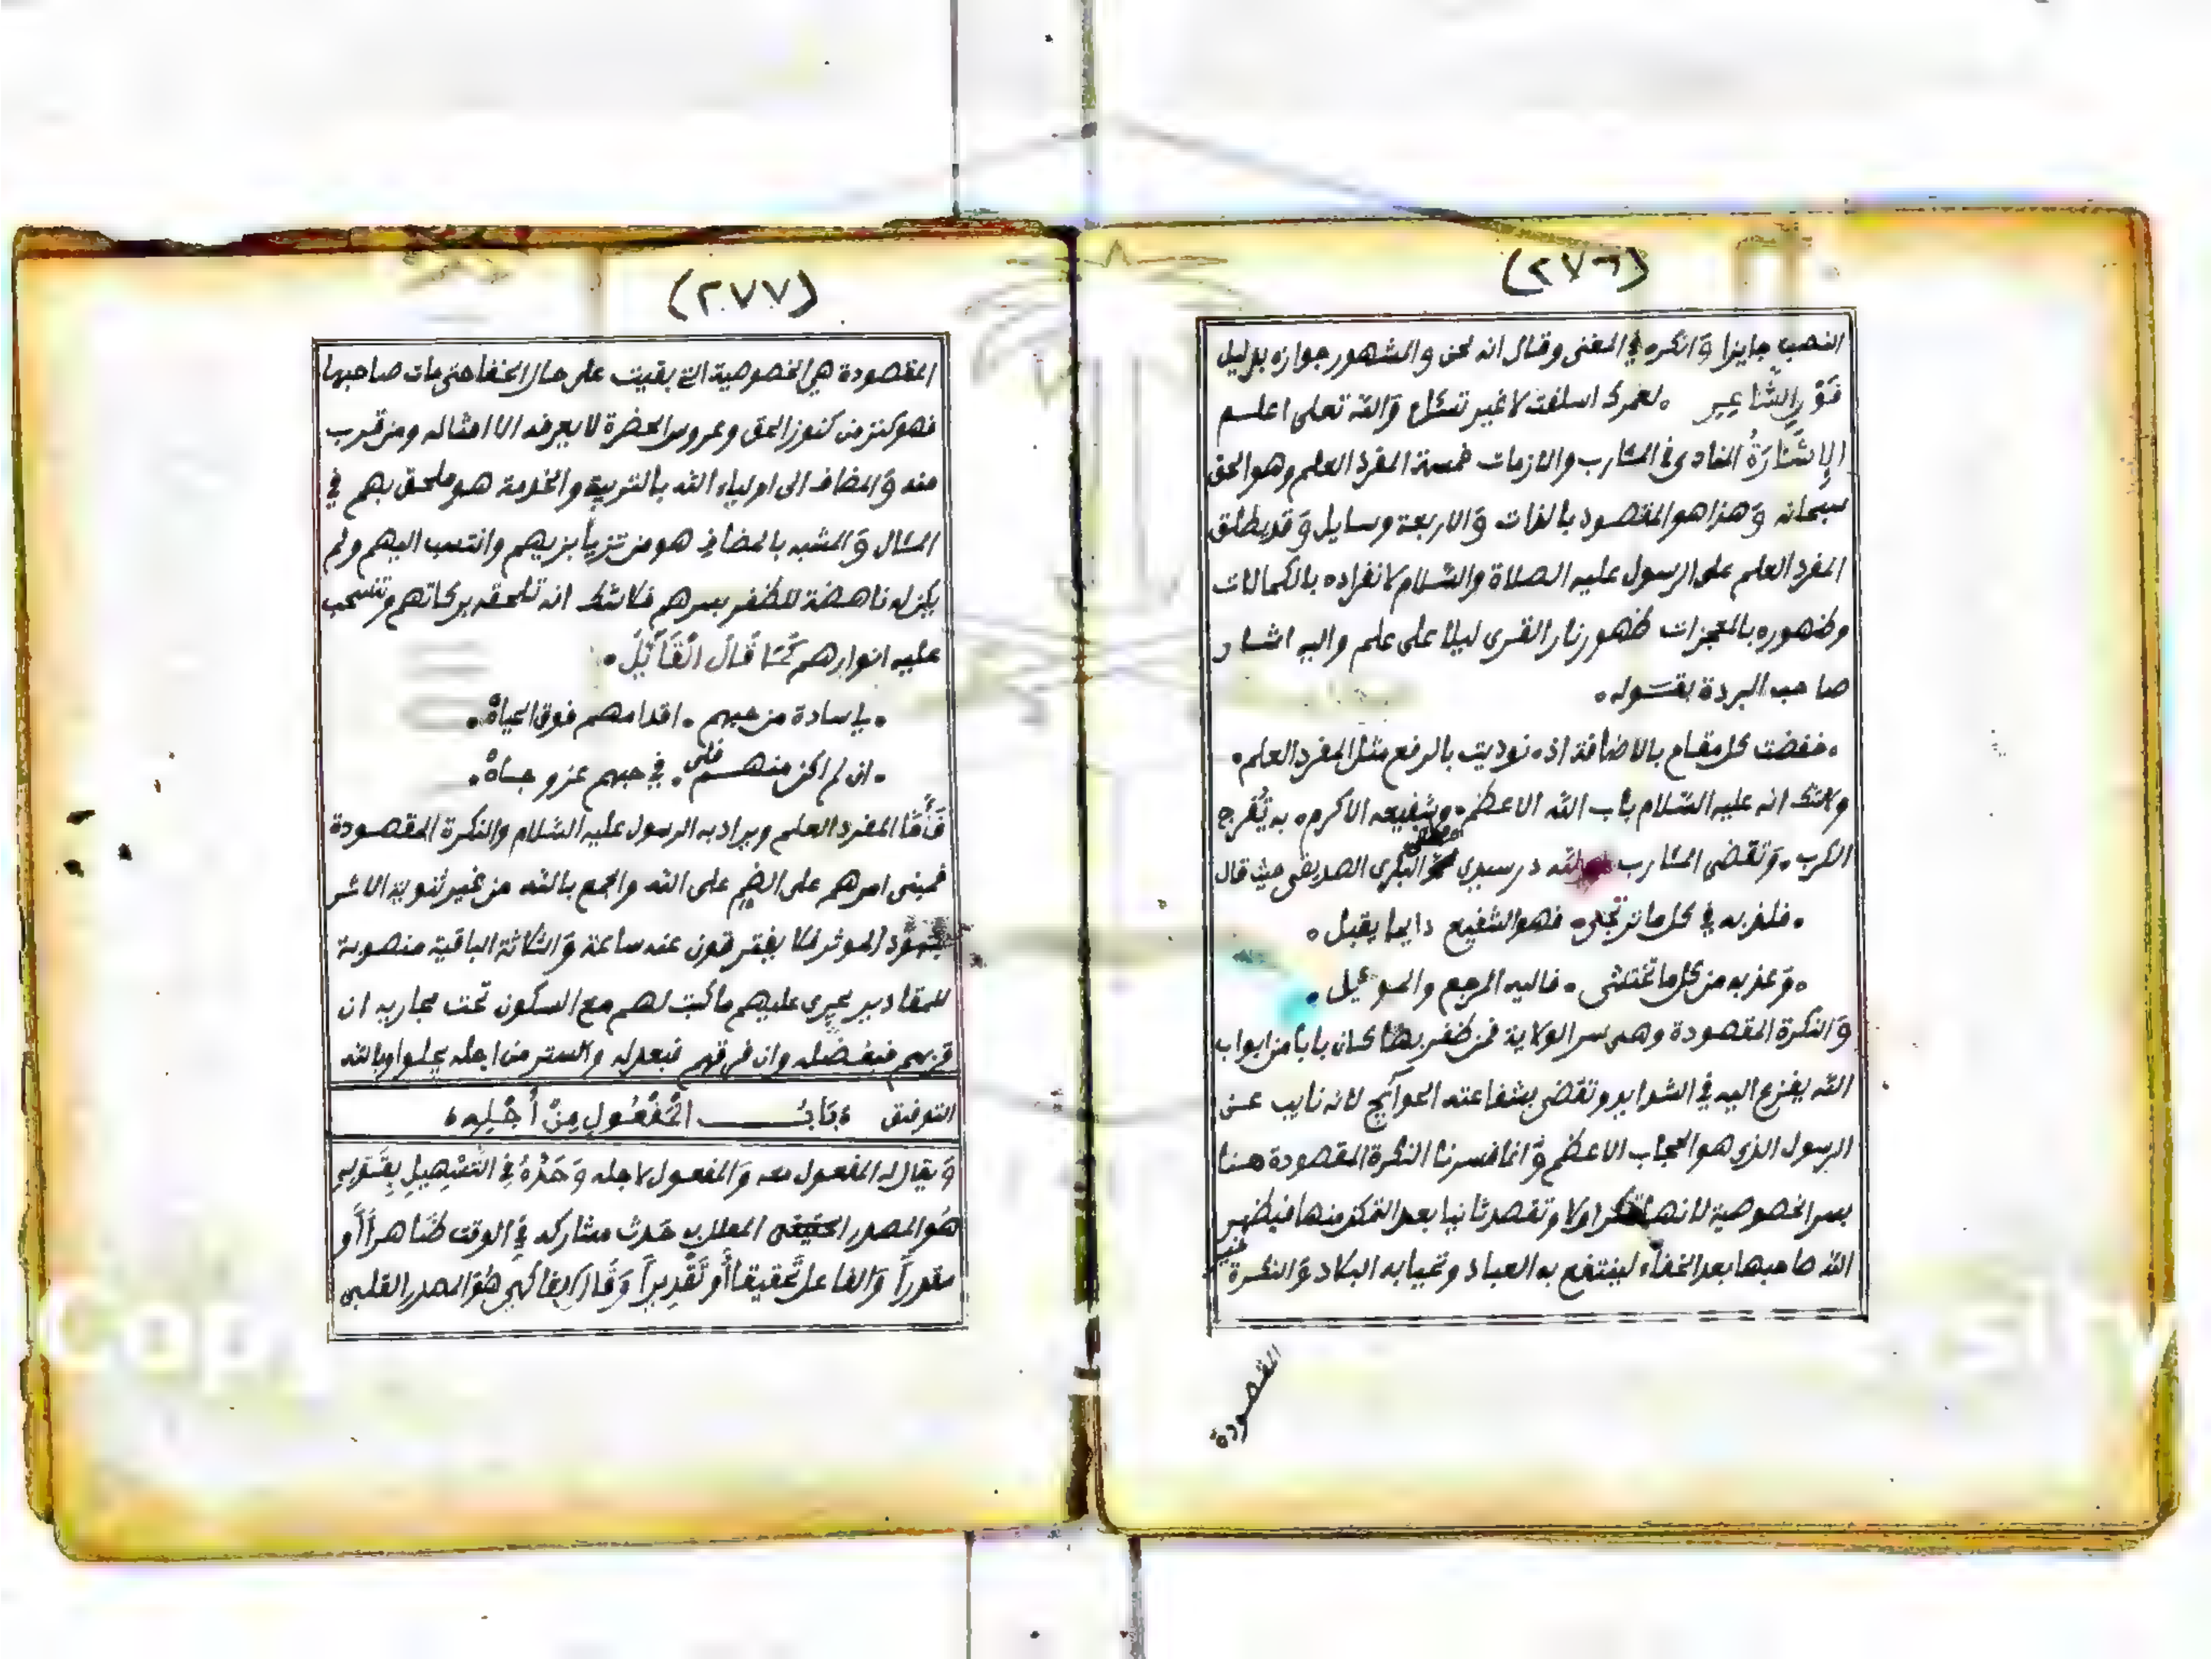 (٢٧٦)
النصب جايزا وَانكره في المغنى وقال انه لحن والمشهور جوازه بدليل
قَوْلِ الشَّاعِرِ . لعمرك اسلفت لا غير تسئل وَالله تعلى اعلم
الاِشَارَةُ المنادى في المئارب والازمات خمسة المفرد العلم وهو الحق
سبحانه وَهذا هو المقصود بالذات وَالاربعة وسايل وَقد يطلق
المفرد العلم على الرسول عليه الصلاة والسّلام لانفراده بالكمالات
وظهوره بالمعجزات ظهور نار القرى ليلا على علم واليه اشار
صاحب البردة بقَوله .
. خفضت كل مقام بالاضافة اذ . نوديت بالرفع مثل المفرد العلم .
ولاشك انه عليه السّلام باب الله الاعظم . وشفيعه الاكرم . به تُفرج
الكرب . وَتقضى المئارب ولله در سيدي البكرى الصديقى حيث قال
. فلذ به في كل ما ترتجى . فهو الشفيع دايما يقبل .
. وَعذ به من كل ما تختشى . فاليه المرجع والموئيل .
وَالنكرة المقصودة وهى سر الولاية فمن ظفر بها كان بابا من ابواب
الله يفزع اليه في الشدايد وتقضى بشفاعته الحوآئج لانه نايب عن
الرسول الذي هو الحجاب الاعظم وَانما فسرنا النكرة المقصودة هنا
بسر الخصوصية لانها تنكر اولا وتقصد ثانيا بعد التمكن منها فيظهر
الله صاحبها بعد الخفآء لينتفع به العباد وتحيا به البلاد وَالنكرة غير
المقصودة
(٢٧٧)
المقصودة هي الخصوصية التي بقيت على حال الخفا حتى مات صاحبها
فهو كنز من كنوز الحق وعروس الحضرة لا يعرفه الا امثاله ومن قرب
منه وَالمضاف الى اولياء الله بالتربية والخدمة هو ملحق بهم في
المئال وَالمشبه بالمضاف هو من تزيأ بزيهم وانتسب اليهم ولم
يكن له ناهضة للظفر بسرهم فلا شك انه تلحقه بركاتهم وتنسحب
عليه انوارهم كَمَا قَالَ الْقَآئِلُ .
. لي سادة من حبهم . اقدامهم فوق الجباهْ .
. ان لم اكن منهم فلي . في حبهم عز وجاهْ .
فَأَمَّا المفرد العلم ويراد به الرسول عليه السّلام والنكرة المقصودة
فمبنى امرهم على الضم على الله والجمع بالله من غير ثنوية الاثر
المؤثر فلا يفترقون عنه ساعة وَالثلاثة الباقية منصوبة
للمقادير يجري عليهم ما كتب لهم مع السكون تحت مجاريه ان
قربهم فبفضله وان فرقهم فبعدله والستر من اجله يحلوا وبالله
التوفيق . بَابُ الْمَفْعُولِ مِنْ أَجْلِهِ .
وَيقال له المفعول معه وَالمفعول لاجله وَحَدُّهُ فِي التَّسْهِيلِ بِقَوْلِهِ
هُوَ المصدر المعلل به حَدث مشاركه فِي الوقت ظَاهراً أو
مقدراً وَالفاعل تَحقيقا أو تَقْدِيراً وَقَالَ الفاكهى هُوَ المصدر القلبى